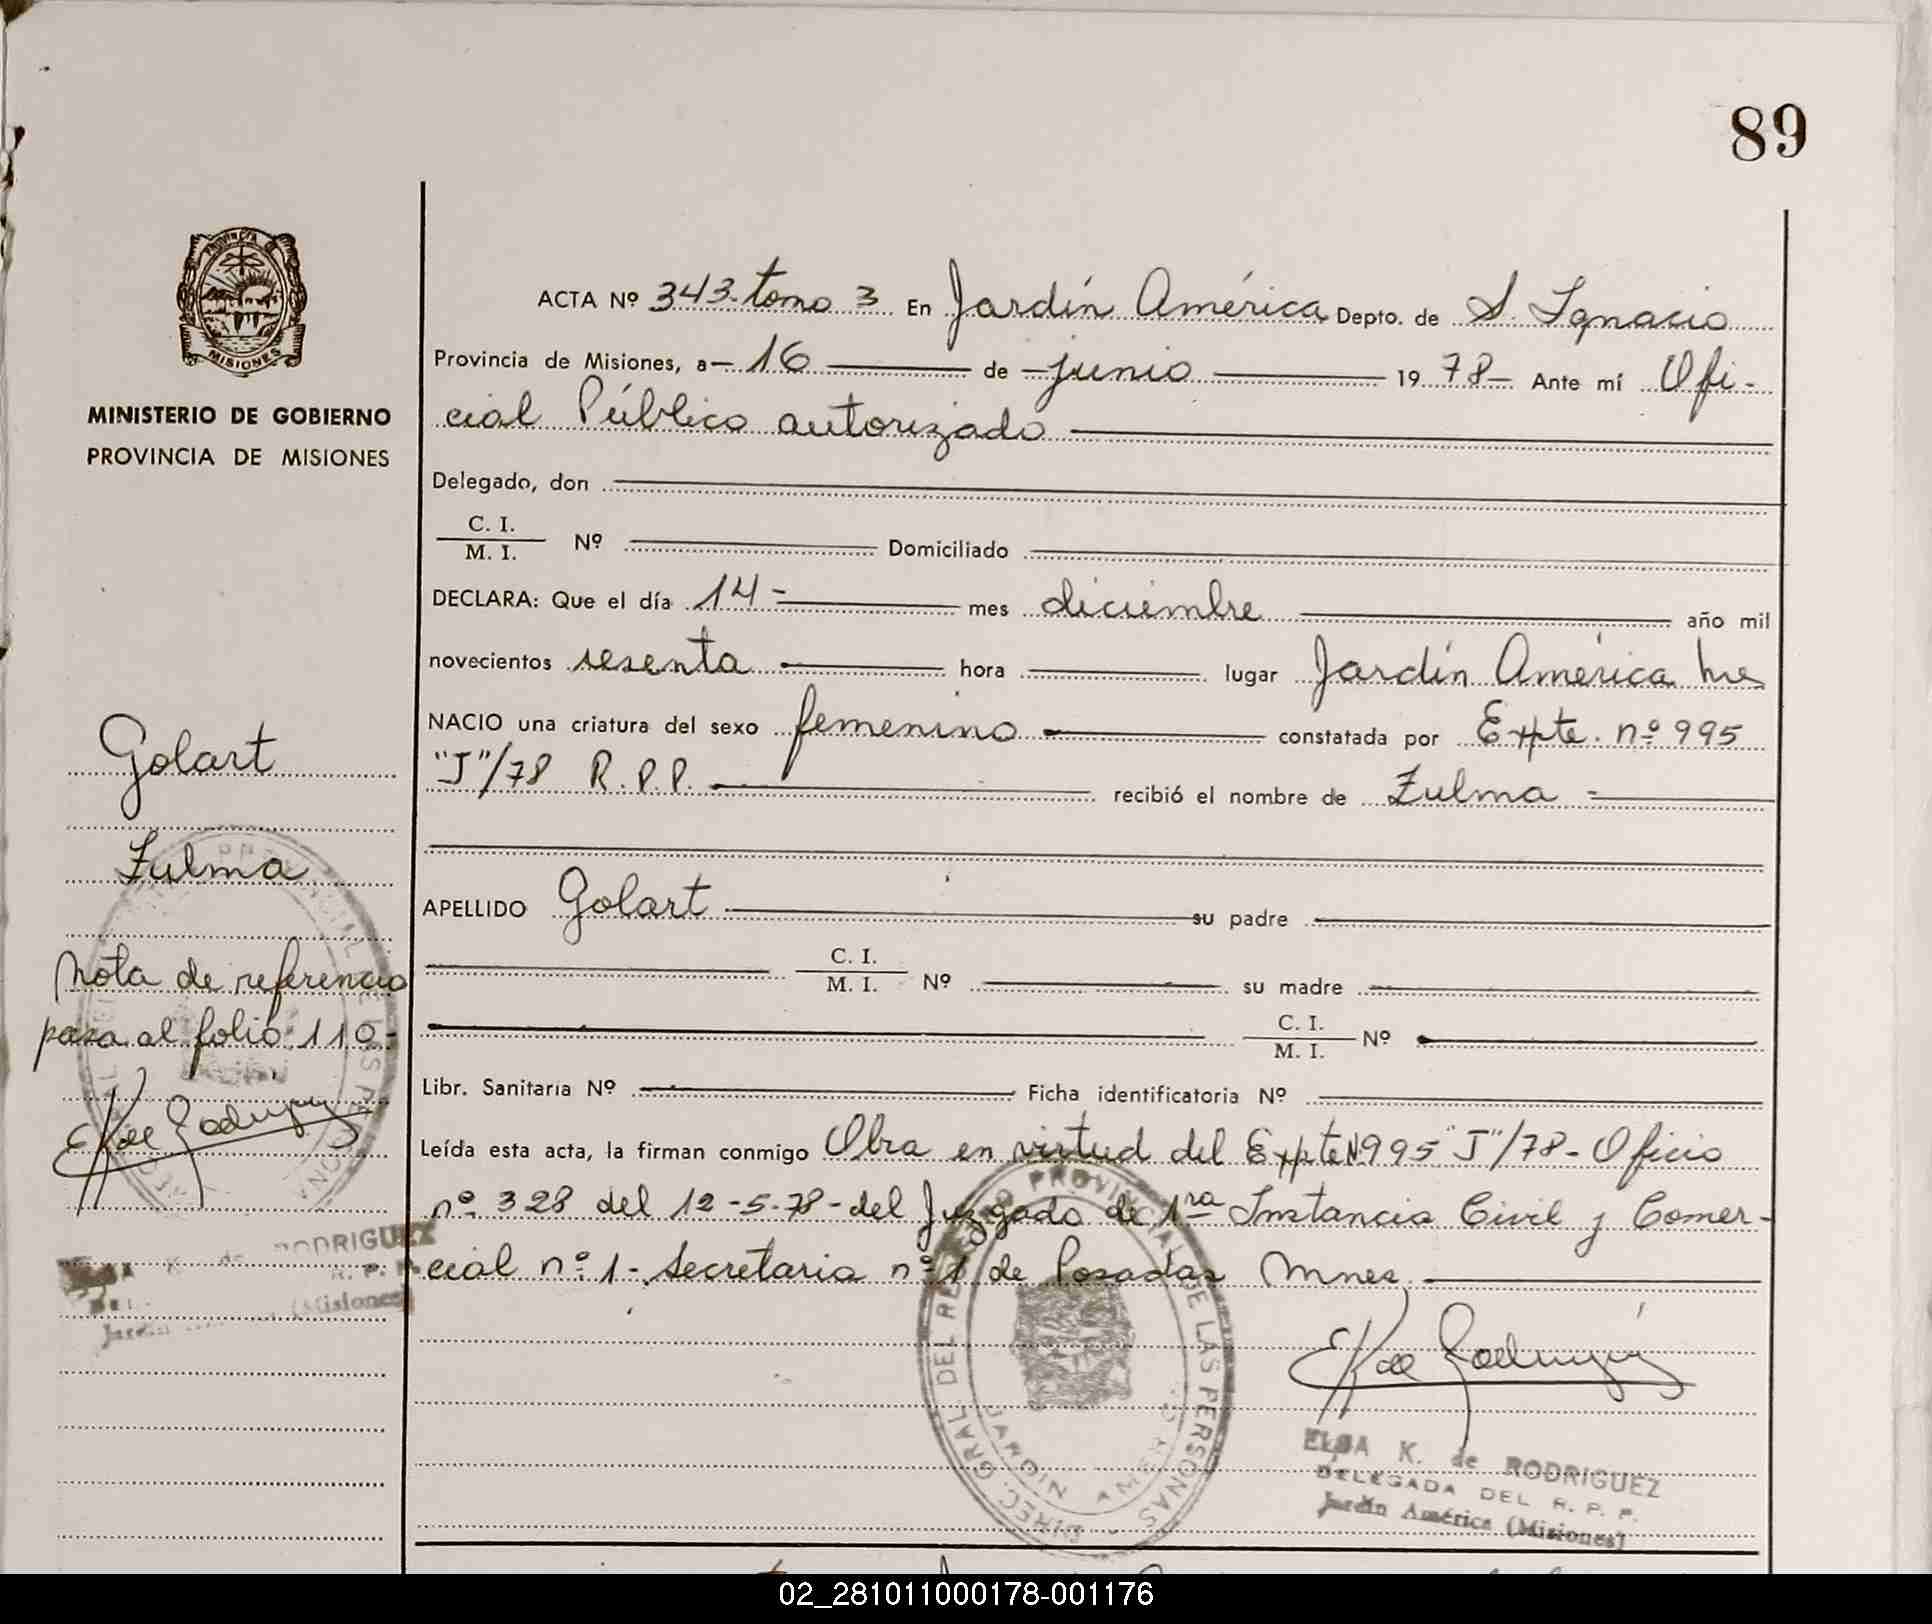 89
PROVINCIA DE
MISIONES
MINISTERIO DE GOBIERNO
PROVINCIA DE MISIONES
ACTA Nº 343-tomo 3 En Jardín América Depto. de S. Ignacio
Provincia de Misiones, a- 16 de junio 19 78- Ante mí Ofi-
cial Público autorizado
Delegado, don
C. I.
M. I. Nº Domiciliado
DECLARA: Que el día 14- mes diciembre año mil
novecientos sesenta hora lugar Jardín América Mnes
NACIO una criatura del sexo femenino constatada por Expte. nº 995
"J"/78 R.P.P. recibió el nombre de Zulma -
APELLIDO Golart su padre
C. I.
M. I. Nº su madre
C. I.
M. I. Nº
Libr. Sanitaria Nº Ficha identificatoria Nº
Leída esta acta, la firman conmigo Obra en virtud del Expte Nº 995 "J"/78- Oficio
nº 328 del 12-5-78-del Juzgado de 1ra Instancia Civil y Comer-
cial nº 1-Secretaria nº 1 de Posadas Mnes.
Golart
Zulma
Nota de referencia
pasa al folio 110-
EKde Rodriguez
K. de RODRIGUEZ
R. P. P.
(Misiones)
EKde Rodriguez
DIREC. GRAL. DEL REGISTRO PROVINCIAL DE LAS PERSONAS
JARDIN AMERICA
ELSA K. de RODRIGUEZ
DELEGADA DEL R. P. P.
Jardín América (Misiones)
02_281011000178-001176